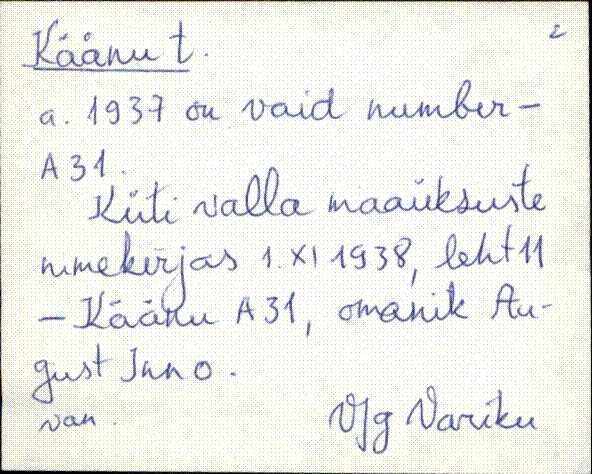 2
Käänu t.
a. 1937 on vaid number-
A 31.
Küti valla maaüksuste
nimekirjas 1. XI 1938, leht 11
- Käänu A 31, omanik Au-
gust Inno.
van. VJg Variku